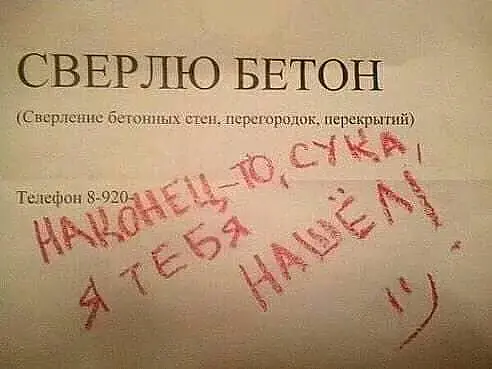 СВЕРЛЮ БЕТОН
(Сверление бетонных стен, перегородок, перекрытий)
Телефон 8-920-
НАКОНЕЦ-ТО, СУКА,
Я ТЕБЯ
НАШЁЛ!
:)